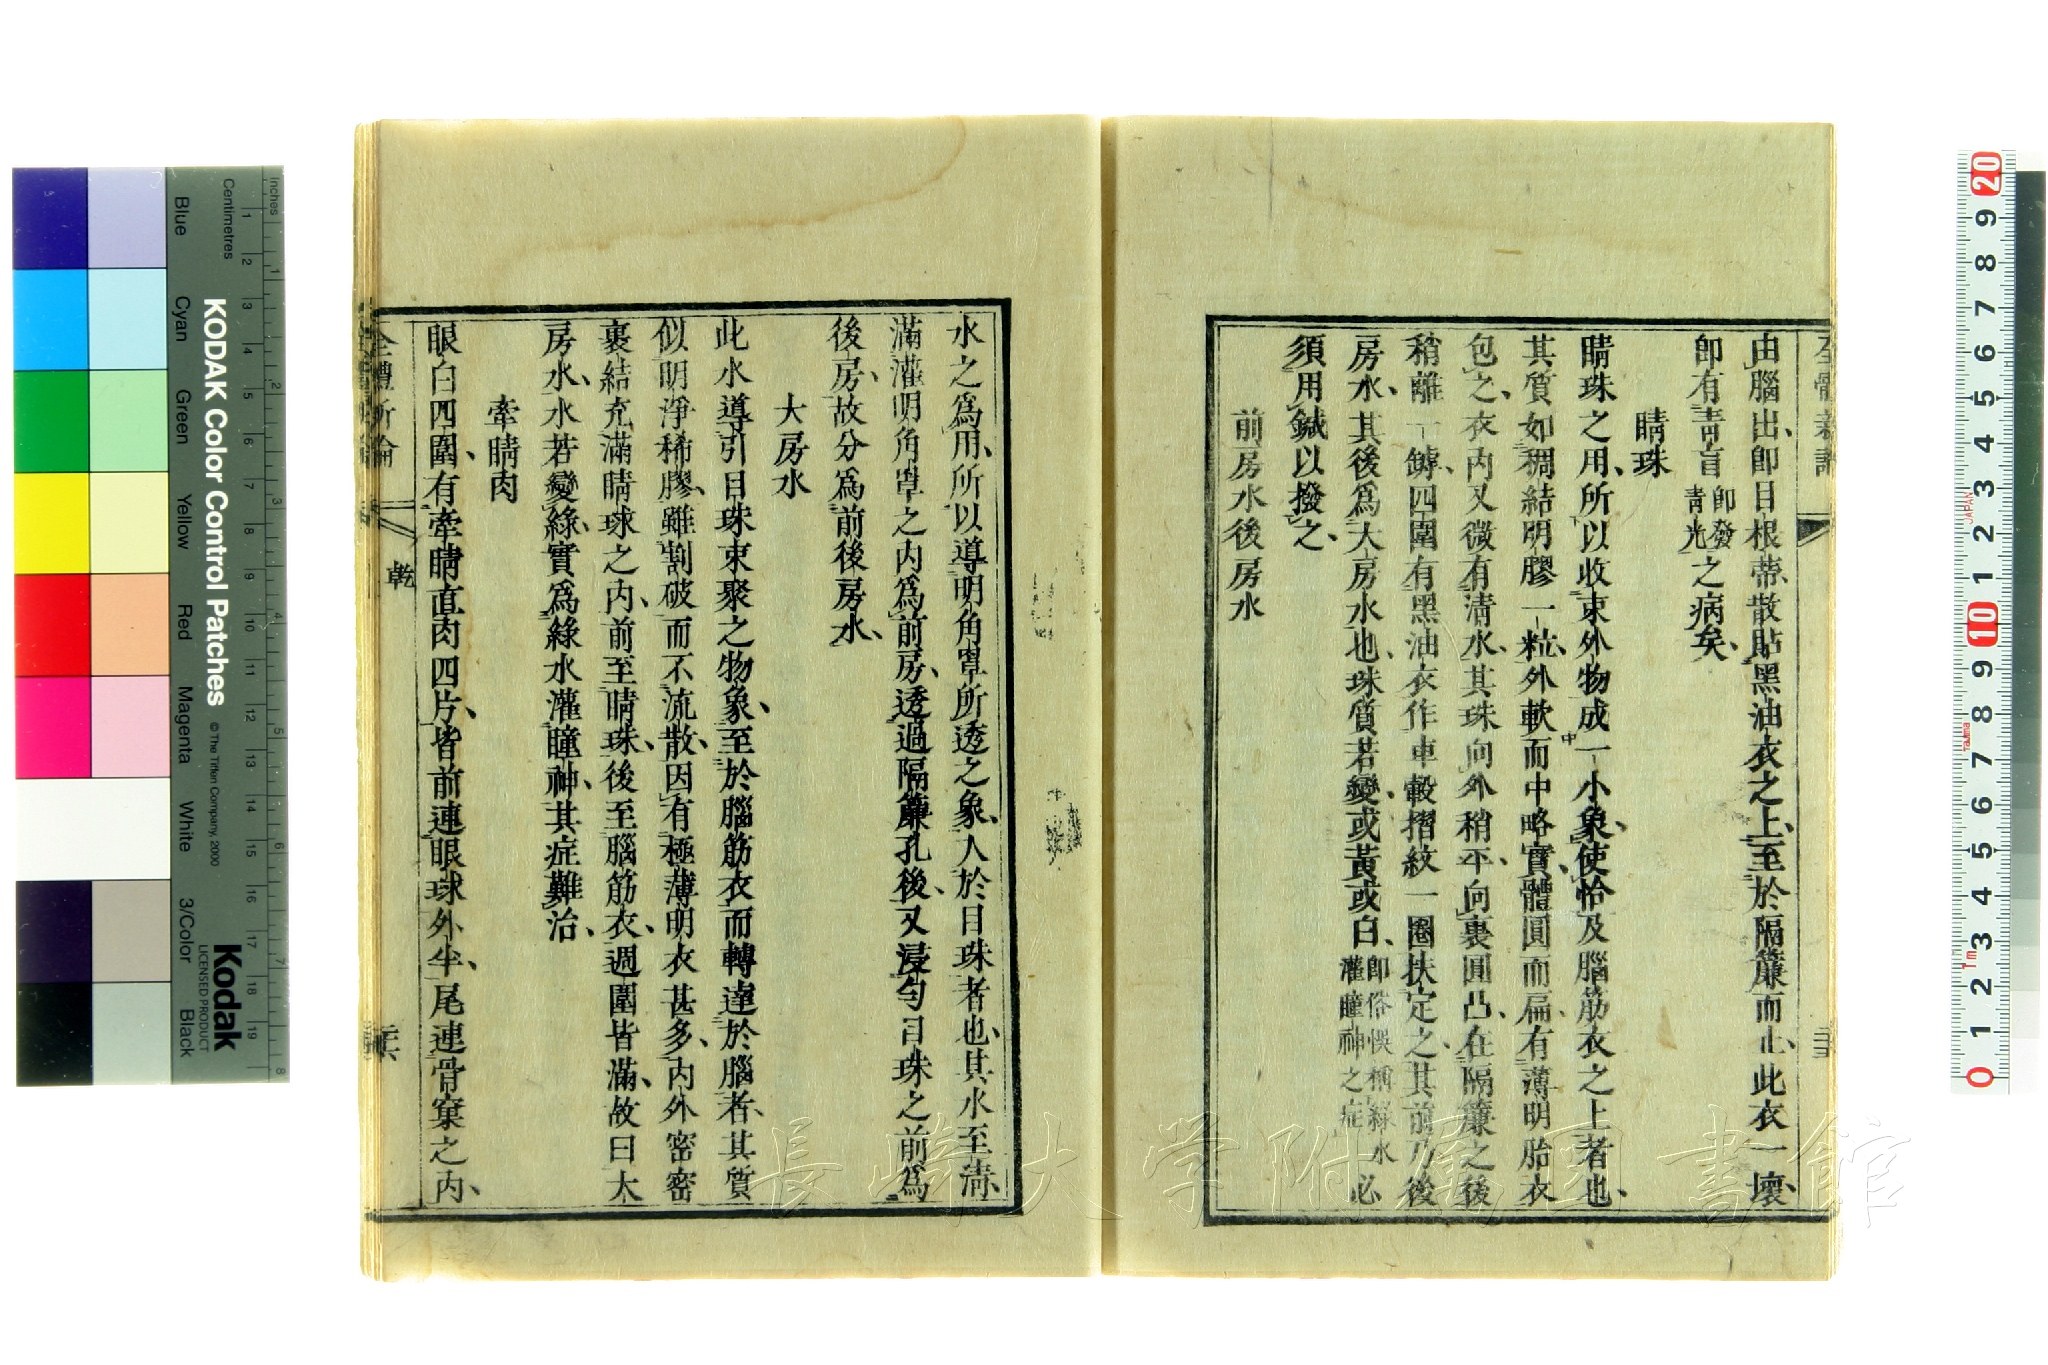 全體新論
由腦出、卽目根蒂、散貼黑油衣之上、至於隔簾而止、此衣一壞、
卽有靑盲卽發靑光之病矣、
睛珠
睛珠之用、所以收束外物成一小象、使恰及腦筋衣之上者也、
其質如稠結明膠一粒、外軟而中略實、體圓而扁、有薄明胎衣
中
包之、衣內又微有淸水、其珠向外稍平、向裏圓凸、在隔簾之後
稍離一罅、四圍有黑油衣作車轂摺紋一圈扶定之、其前乃後
房水、其後爲大房水也、珠質若變、或黃或白、卽俗悞稱綠水灌瞳神之症必
須用鍼以撥之、
前房水後房水
水之爲用、所以導明角罩所透之象、入於目珠者也、其水至淸、
滿灌明角罩之內爲前房、透過隔簾孔後、又浸勻目珠之前爲
後房、故分爲前後房水、
大房水
此水導引目珠束聚之物象、至於腦筋衣而轉達於腦者、其質
似明淨稀膠、雖割破而不流散、因有極薄明衣甚多、內外密密
裹結充滿睛球之內、前至睛珠、後至腦筋衣、週圍皆滿、故曰大
房水、水若變綠、實爲綠水灌瞳神、其症難治、
牽睛肉
眼白四圍、有牽睛直肉四片、皆前連眼球外半、尾連骨窠之內、
全體新論
乾
二六
長崎大学附属図書館
KODAK Color Control Patches
© The Tiffen Company, 2000
Kodak
LICENSED PRODUCT
Inches
Centimetres
Blue
Cyan
Green
Yellow
Red
Magenta
White
3/Color
Black
1 2 3 4 5 6 7 8 9 10 11 12 13 14 15 16 17 18 19
1 2 3 4 5 6 7 8
20 9 8 7 6 5 4 3 2 1 10 9 8 7 6 5 4 3 2 1 0
JAPAN
Tajima